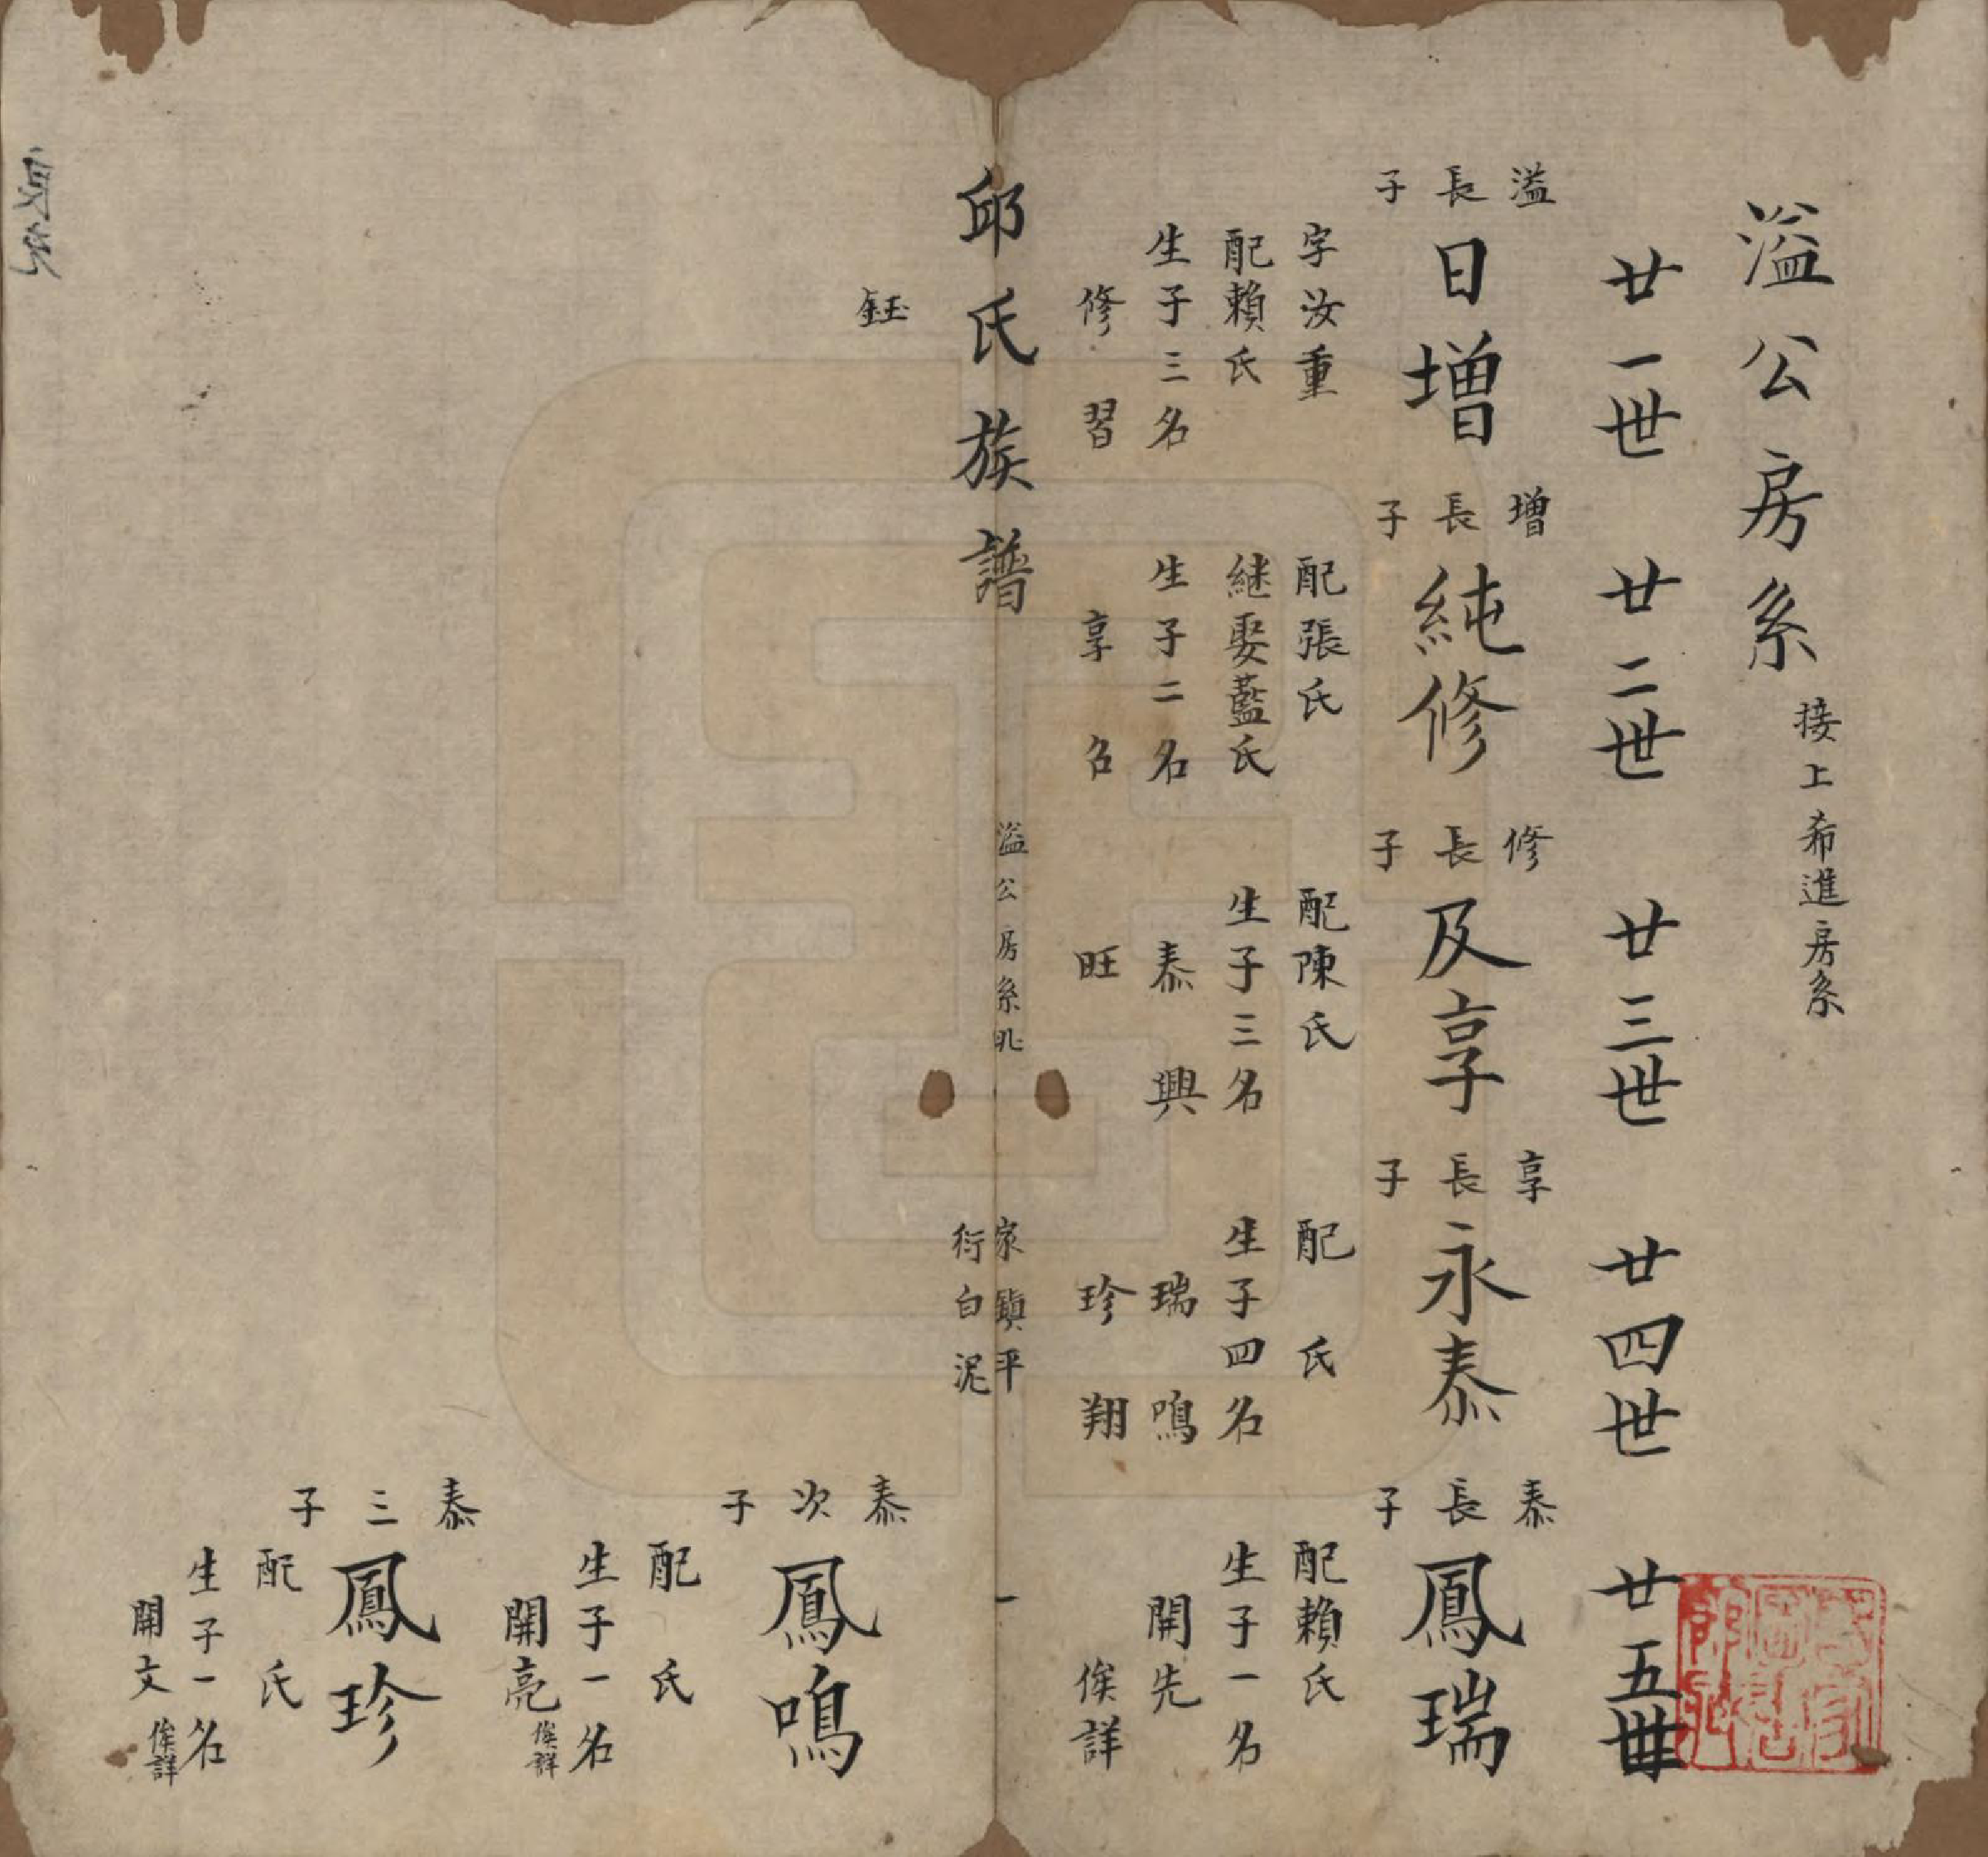 溢公房系 接上希進房系
廿一世
廿二世
廿三世
廿四世
廿五世
溢長子
日增
字汝重
配賴氏
生子三名
修 習
鈺
增長子
純修
配張氏
継娶藍氏
生子二名
享 名
修長子
及享
配陳氏
生子三名
泰 興
旺
享長子
永泰
配 氏
生子四名
瑞 鳴
珍 翔
泰長子
鳳瑞
配賴氏
生子一名
開先
俟詳
邱氏族譜
溢公房系
家鎮平
衍白泥
一
泰次子
鳳鳴
配 氏
生子一名
開亮 俟詳
泰三子
鳳珍
配 氏
生子一名
開文 俟詳